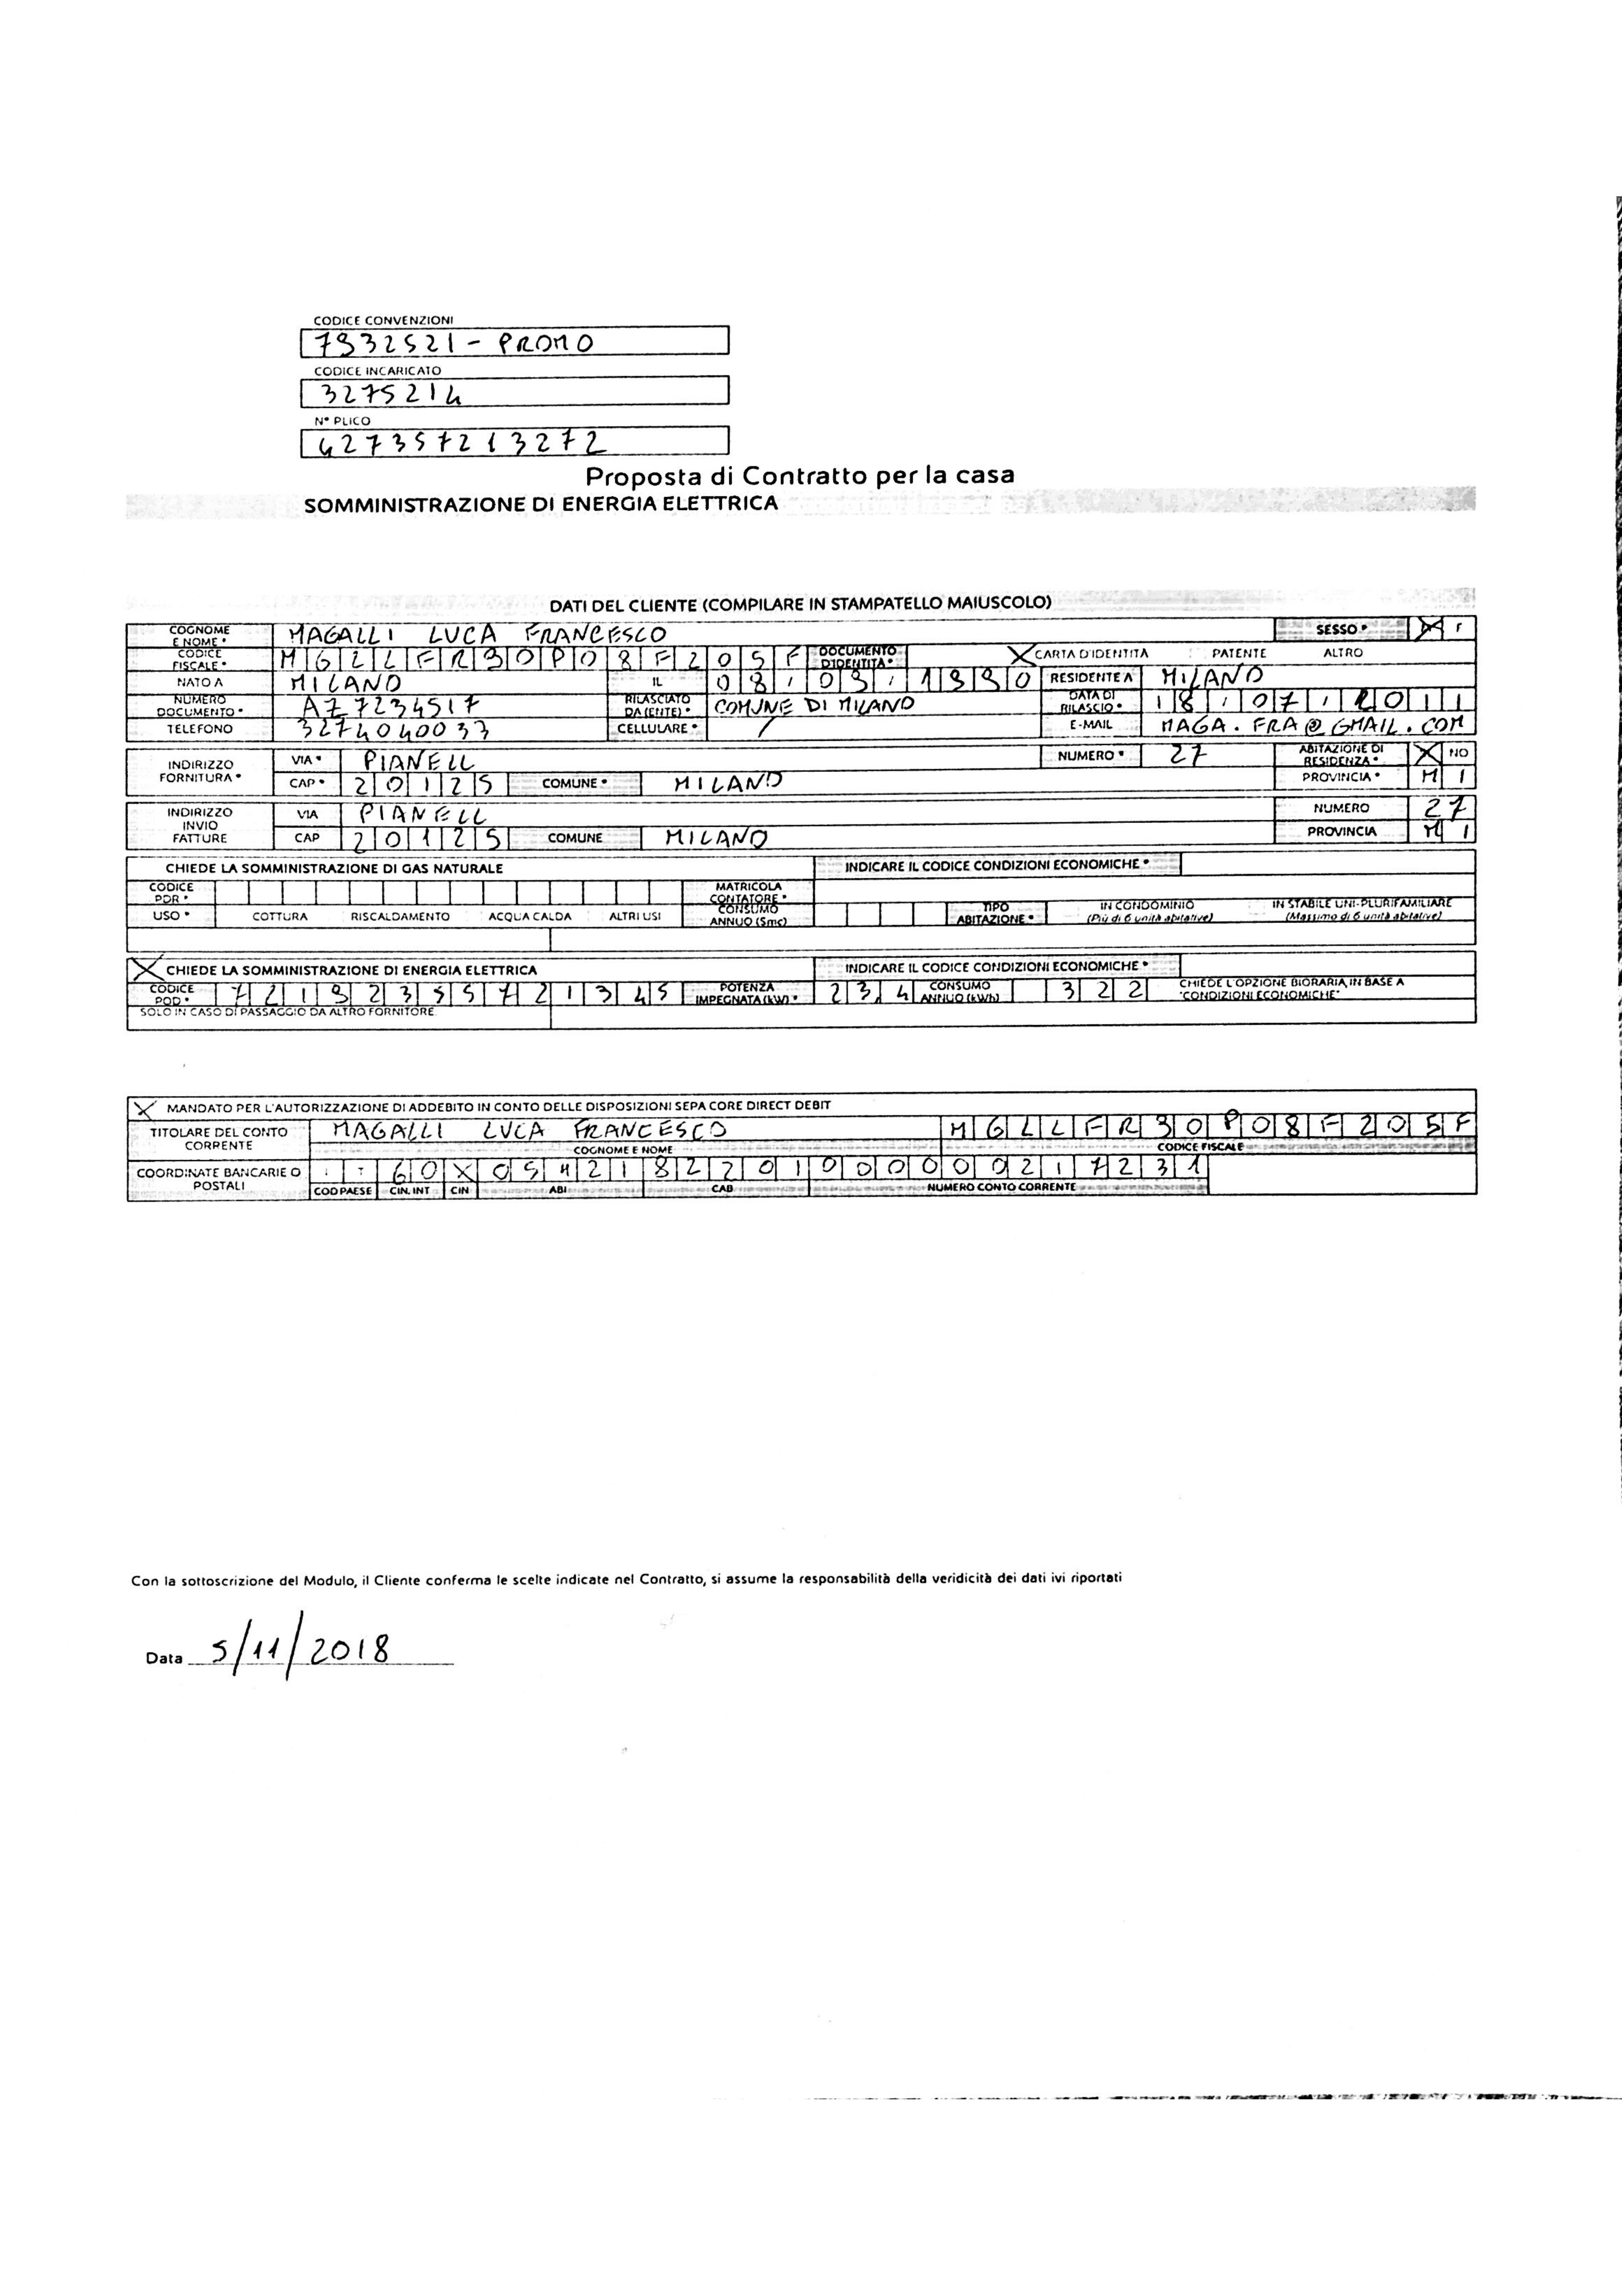 CODICE CONVENZIONI
7932521 - PROMO
CODICE INCARICATO
3275214
N° PLICO
427357213272
Proposta di Contratto per la casa
SOMMINISTRAZIONE DI ENERGIA ELETTRICA
DATI DEL CLIENTE (COMPILARE IN STAMPATELLO MAIUSCOLO)
COGNOME E NOME * MAGALLI LUCA FRANCESCO SESSO * F
CODICE FISCALE * MGLLFR90P08F205F DOCUMENTO D'IDENTITA * X CARTA D'IDENTITA PATENTE ALTRO
NATO A MILANO IL 08.09.1990 RESIDENTE A MILANO
NUMERO DOCUMENTO * A77234517 RILASCIATO DA (ENTE) * COMUNE DI MILANO DATA DI RILASCIO * 18.07.2011
TELEFONO 3274040033 CELLULARE * / E-MAIL MAGA.FRA@GMAIL.COM
INDIRIZZO FORNITURA * VIA * PIANELL NUMERO * 27 ABITAZIONE DI RESIDENZA * X NO
CAP * 20125 COMUNE * MILANO PROVINCIA * MI
INDIRIZZO INVIO FATTURE VIA PIANELL NUMERO 27
CAP 20125 COMUNE MILANO PROVINCIA MI
CHIEDE LA SOMMINISTRAZIONE DI GAS NATURALE INDICARE IL CODICE CONDIZIONI ECONOMICHE *
CODICE PDR * MATRICOLA CONTATORE *
USO * COTTURA RISCALDAMENTO ACQUA CALDA ALTRI USI CONSUMO ANNUO (Smc) TIPO ABITAZIONE * IN CONDOMINIO (Più di 6 unità abitative) IN STABILE UNI-PLURIFAMILIARE (Massimo di 6 unità abitative)
X CHIEDE LA SOMMINISTRAZIONE DI ENERGIA ELETTRICA INDICARE IL CODICE CONDIZIONI ECONOMICHE *
CODICE POD * 72192355721345 POTENZA IMPEGNATA (kW) * 23,4 CONSUMO ANNUO (kWh) 322 CHIEDE L'OPZIONE BIORARIA, IN BASE A "CONDIZIONI ECONOMICHE"
SOLO IN CASO DI PASSAGGIO DA ALTRO FORNITORE
X MANDATO PER L'AUTORIZZAZIONE DI ADDEBITO IN CONTO DELLE DISPOSIZIONI SEPA CORE DIRECT DEBIT
TITOLARE DEL CONTO CORRENTE MAGALLI LUCA FRANCESCO MGLLFR90P08F205F
COGNOME E NOME CODICE FISCALE
COORDINATE BANCARIE O POSTALI IT 60 X 05421 82201 000000217231
COD PAESE CIN. INT CIN ABI CAB NUMERO CONTO CORRENTE
Con la sottoscrizione del Modulo, il Cliente conferma le scelte indicate nel Contratto, si assume la responsabilità della veridicità dei dati ivi riportati
Data 5/11/2018